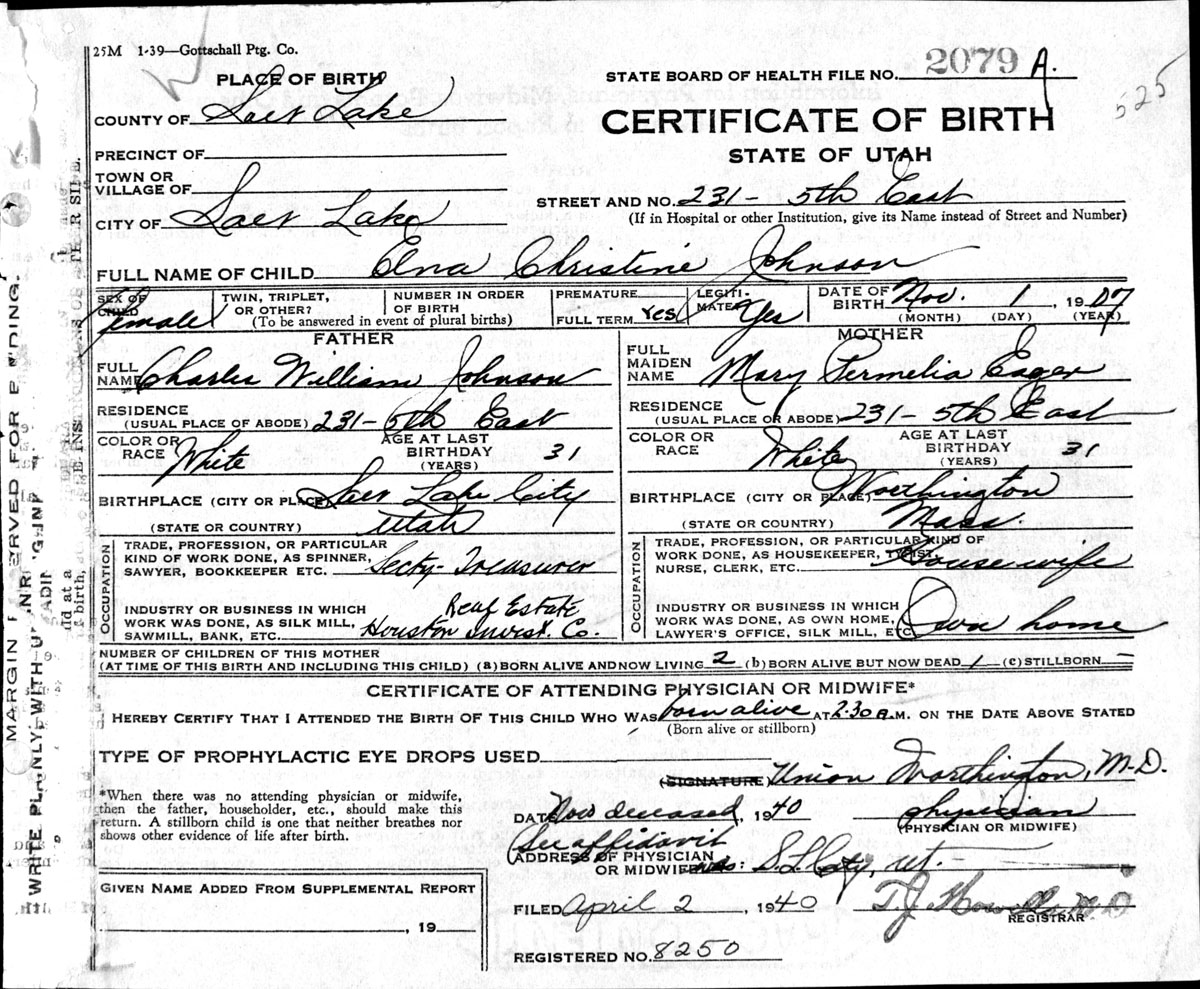 25M 1-39—Gottschall Ptg. Co.
STATE BOARD OF HEALTH FILE NO. 2079 A.
525
PLACE OF BIRTH
COUNTY OF Salt Lake
CERTIFICATE OF BIRTH
STATE OF UTAH
PRECINCT OF
TOWN OR
VILLAGE OF
STREET AND NO. 231 - 5th East
(If in Hospital or other Institution, give its Name instead of Street and Number)
CITY OF Salt Lake
FULL NAME OF CHILD Elna Christine Johnson
SEX OF CHILD female
TWIN, TRIPLET, OR OTHER?
NUMBER IN ORDER OF BIRTH
(To be answered in event of plural births)
PREMATURE
FULL TERM Yes
LEGITIMATE? Yes
DATE OF BIRTH Nov. 1, 1907
(MONTH) (DAY) (YEAR)
FATHER
FULL NAME Charles William Johnson
RESIDENCE
(USUAL PLACE OF ABODE) 231 - 5th East
COLOR OR RACE White
AGE AT LAST BIRTHDAY 31
(YEARS)
BIRTHPLACE (CITY OR PLACE) Salt Lake City
(STATE OR COUNTRY) Utah
OCCUPATION
TRADE, PROFESSION, OR PARTICULAR
KIND OF WORK DONE, AS SPINNER,
SAWYER, BOOKKEEPER ETC. Secty-Treasurer
INDUSTRY OR BUSINESS IN WHICH
WORK WAS DONE, AS SILK MILL,
SAWMILL, BANK, ETC. Real Estate
Houston Invest. Co.
MOTHER
FULL MAIDEN NAME Mary Permelia Eager
RESIDENCE
(USUAL PLACE OF ABODE) 231 - 5th East
COLOR OR RACE White
AGE AT LAST BIRTHDAY 31
(YEARS)
BIRTHPLACE (CITY OR PLACE) Worthington
(STATE OR COUNTRY) Mass.
OCCUPATION
TRADE, PROFESSION, OR PARTICULAR KIND OF
WORK DONE, AS HOUSEKEEPER, TYPIST,
NURSE, CLERK, ETC. Housewife
INDUSTRY OR BUSINESS IN WHICH
WORK WAS DONE, AS OWN HOME,
LAWYER'S OFFICE, SILK MILL, ETC Own home
NUMBER OF CHILDREN OF THIS MOTHER
(AT TIME OF THIS BIRTH AND INCLUDING THIS CHILD) (a) BORN ALIVE AND NOW LIVING 2 (b) BORN ALIVE BUT NOW DEAD 1 (c) STILLBORN -
CERTIFICATE OF ATTENDING PHYSICIAN OR MIDWIFE*
I HEREBY CERTIFY THAT I ATTENDED THE BIRTH OF THIS CHILD WHO WAS born alive AT 2.30 a.M. ON THE DATE ABOVE STATED
(Born alive or stillborn)
TYPE OF PROPHYLACTIC EYE DROPS USED
(SIGNATURE) Union Worthington, M.D.
*When there was no attending physician or midwife,
then the father, householder, etc., should make this
return. A stillborn child is one that neither breathes nor
shows other evidence of life after birth.
DATE Now deceased, 1940 physician
(PHYSICIAN OR MIDWIFE)
See affidavit
(ADDRESS OF PHYSICIAN
OR MIDWIFE was: S. L. City, Ut.
GIVEN NAME ADDED FROM SUPPLEMENTAL REPORT
, 19
FILED April 2, 1940 T. J. Howells M D
REGISTRAR
REGISTERED NO. 8250